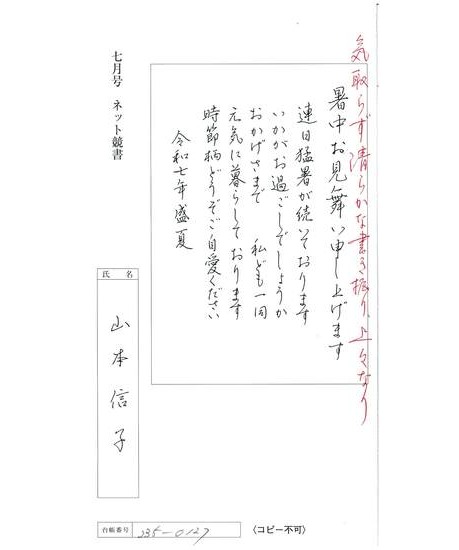 気取らず清らかな書き振り、上々なり
暑中お見舞い申し上げます
連日猛暑が続いております
いかがお過ごしでしょうか
おかげさまで 私ども一同
元気に暮らしております
時節柄どうぞご自愛ください
令和七年盛夏
七月号 ネット競書
氏名
山本信子
台帳番号 235-0127
〈コピー不可〉